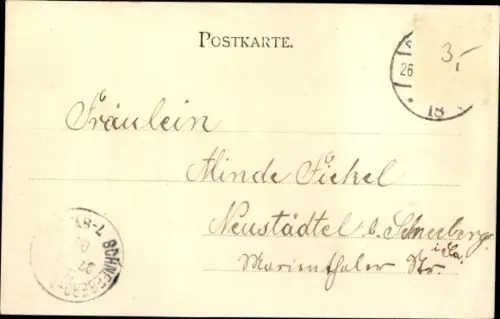 POSTKARTE.
3,-
26
18
Fräulein
Minde Fickel
Neustädtel b. Schneeberg
i. Sa.
Marienthaler Str.
SCHNEEBERG
27